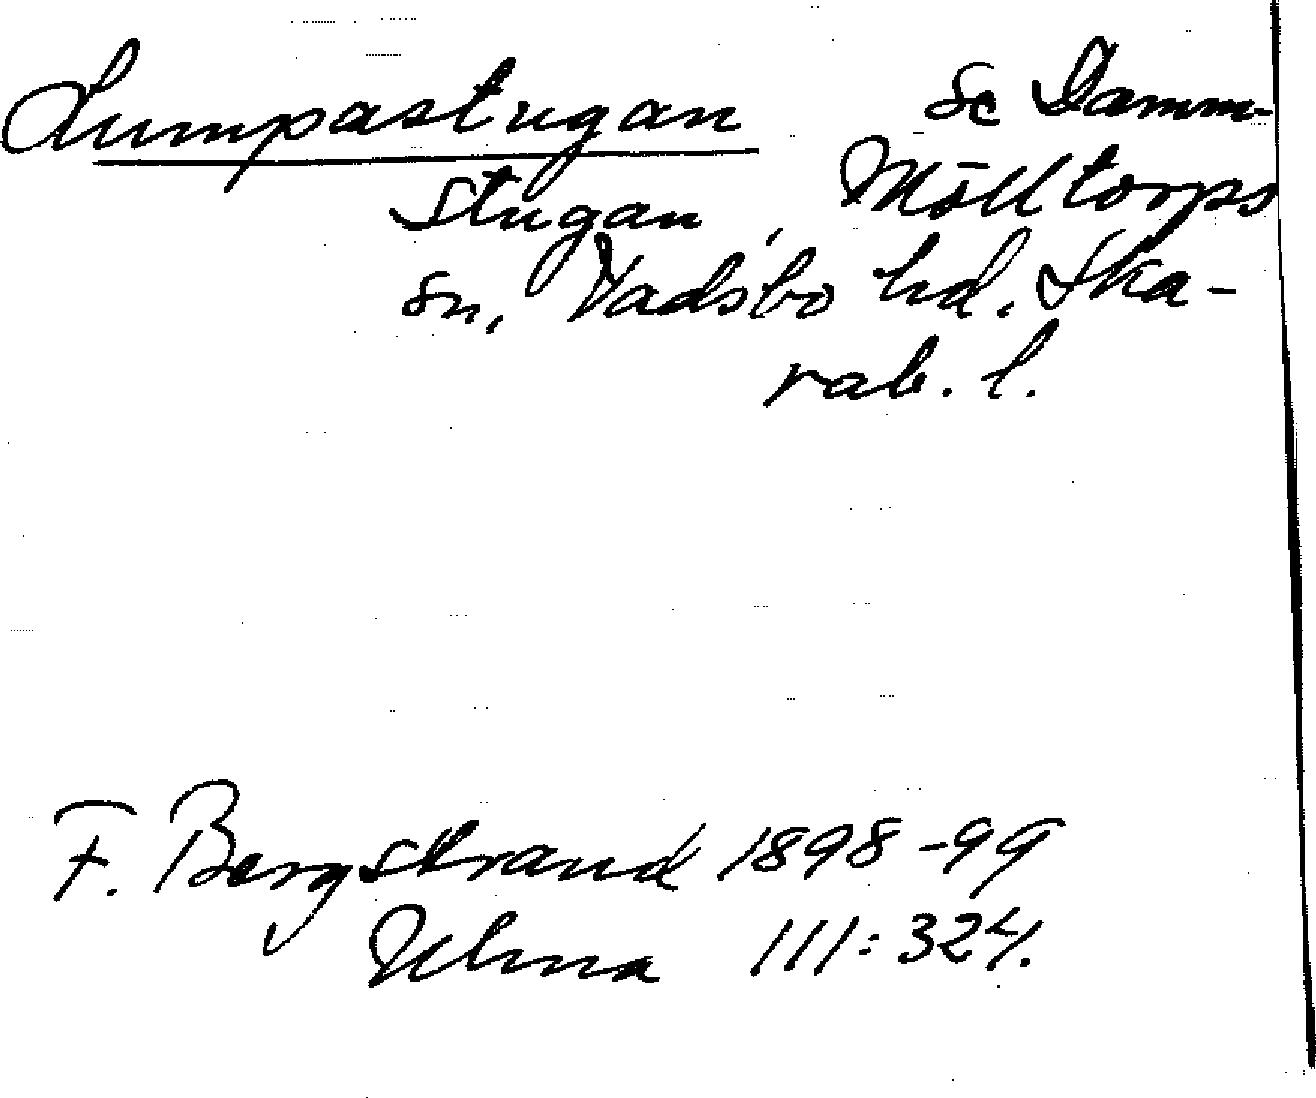 Lumpastugan se Damm-
stugan, Mölltorps
sn, Vadsbo hd. Ska-
rab. l.
F. Bergstrand 1898-99
Ulma 111:324.